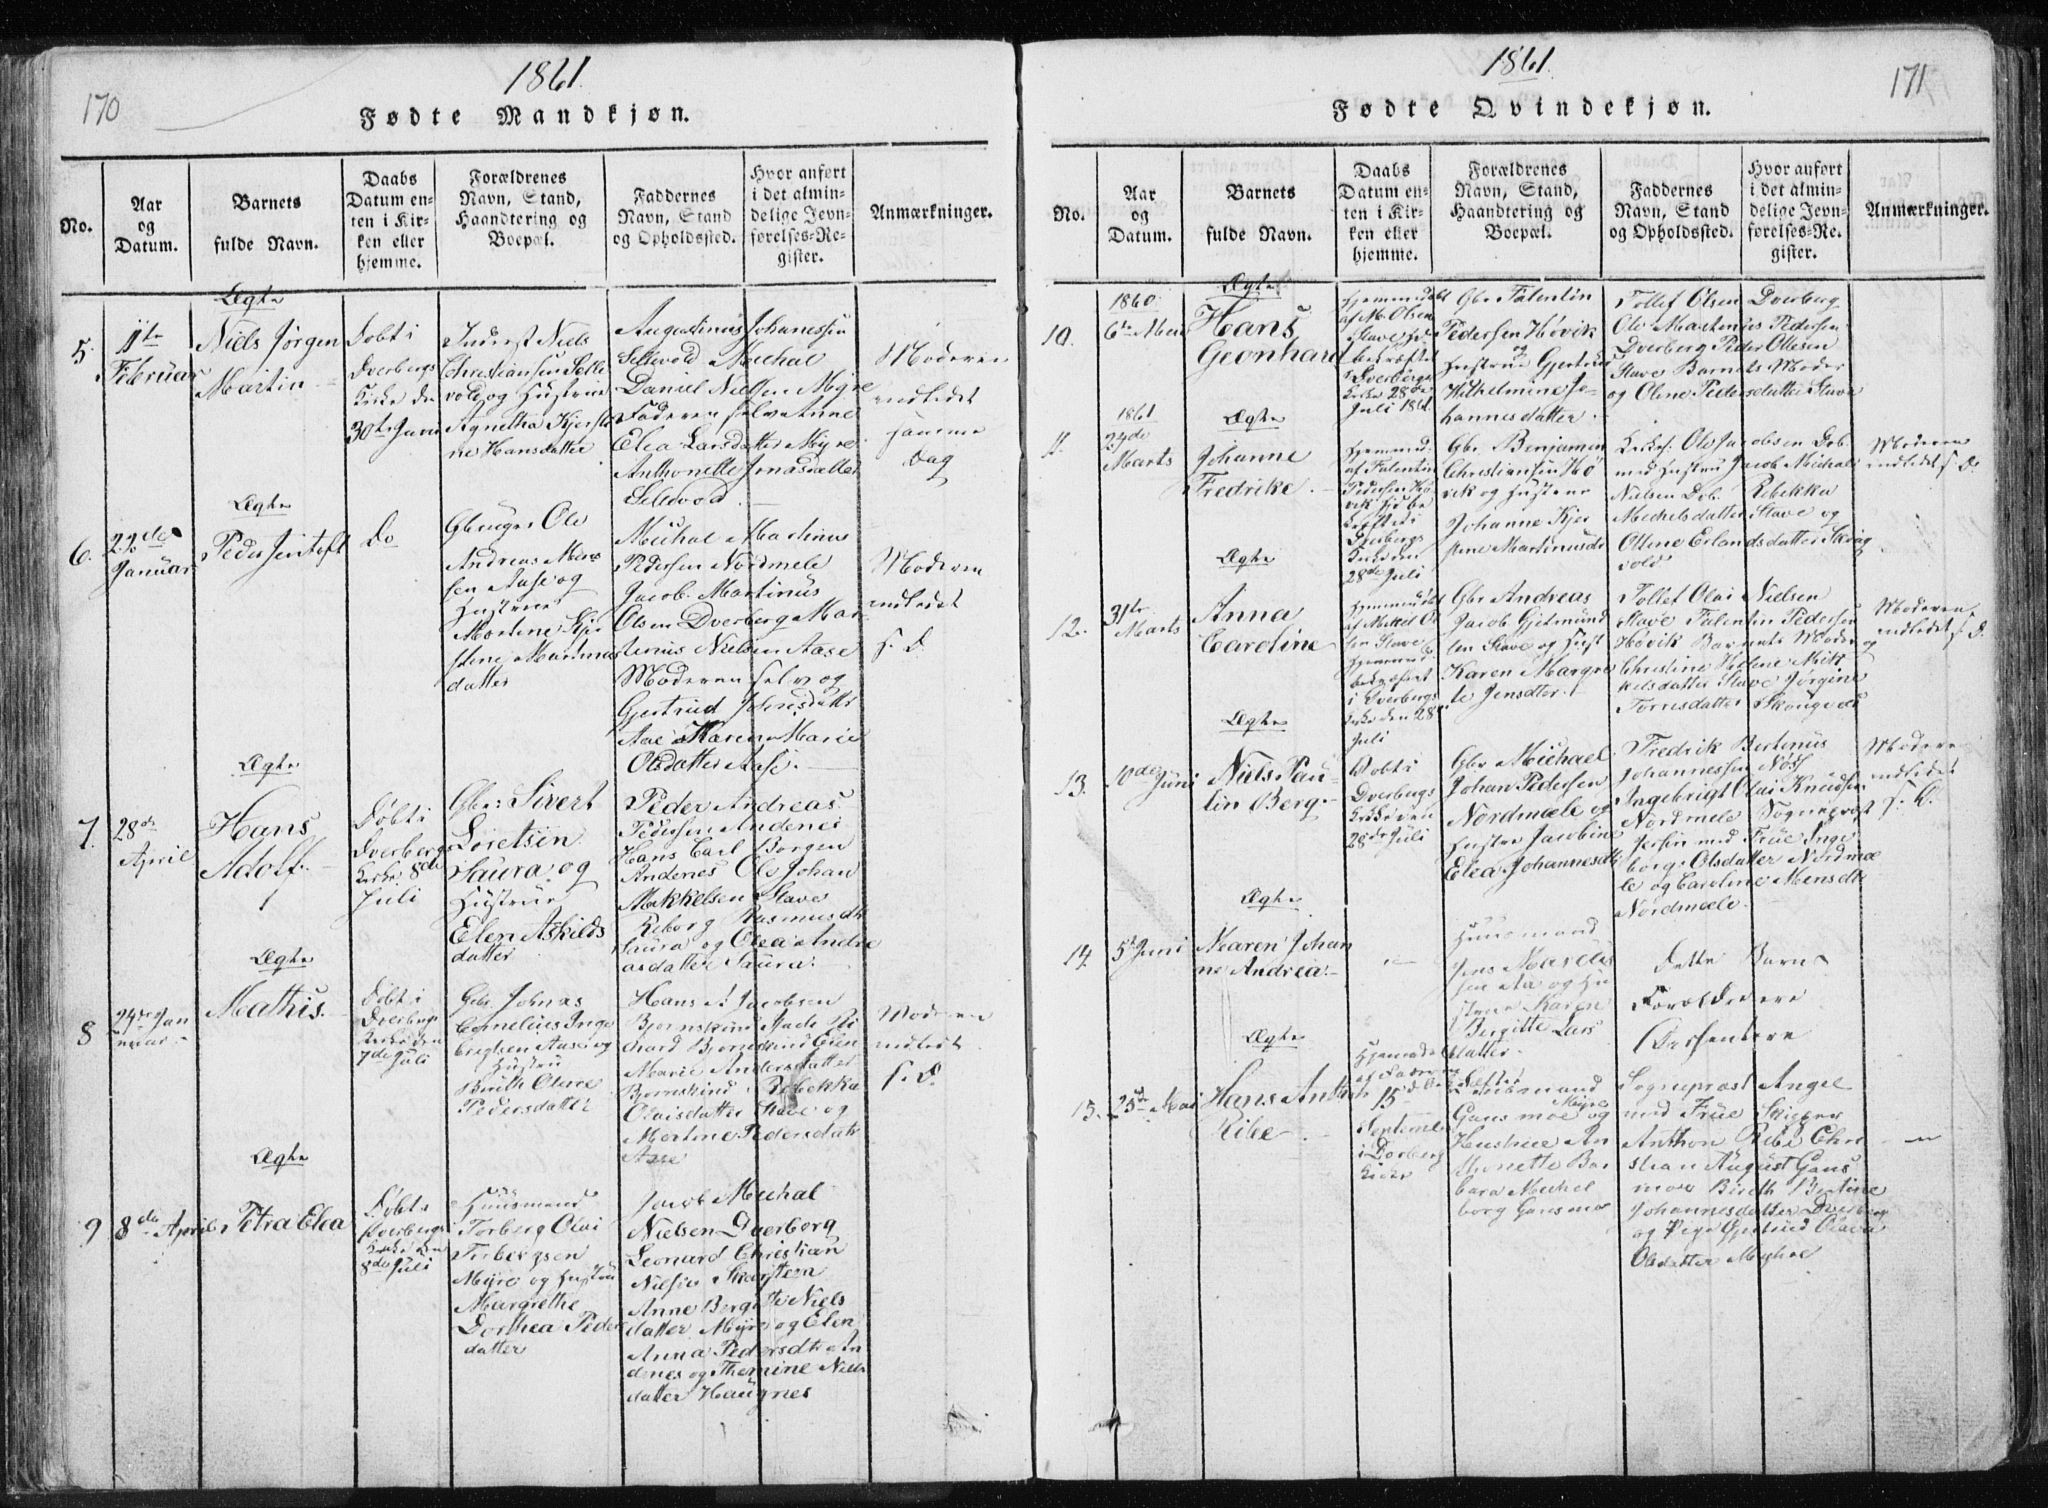 170
1861
Fødte Mandkjøn.
No.
Aar
og
Datum.
Barnets
fulde Navn.
Daabs
Datum en-
ten i Kir-
ken eller
hjemme.
Forældrenes
Navn, Stand,
Haandtering og
Boepæl.
Faddernes
Navn, Stand
og Opholdssted.
Hvor anført
i det almin-
delige Jevn-
førelses-Re-
gister.
Anmærkninger.
5.
11te
Februar
Ægte
Niels Jørgen
Martin
Døbt i
Dverbergs
Kirke den
30te Juni
Inderst Niels
Christiansen Selle
vold og Hustrue
Agnetha Kjersti
ne Hansdatter
Augustinus Johanessen
Sellevold Michal
Daniel Nielsen Myre
Faderen selv Anne
Elea Larsdatter Myre
Anthonette Jonasdatter
Sellevod
Moderen
indledet
samme
Dag
6.
22de
Januar
Ægte
Peder Jentoft
Do
Gbruger Ole
Andreas Mon
sen Aase og
Hustrue
Martine Kjer
stine Martinus
datter
Michal Martinus
Pedersen Nordmele
Jacob Martinus
Olsen Dverberg Mar
tinus Nielsen Aase
Moderen selv og
Gjertrud
Aase Maren Marie
Olsdatter Aase.
Moderen
indledet
s. D.
7.
28de
April
Ægte
Hans
Adolf
Døbt i
Dverbergs
Kirke 8de
Juli
Gbr: Sivert
Loretsen
Saura og
Hustrue
Elen Askilds
datter
Peder Andreas
Pedersen Andenes
Hans Carl Borgen
Andenes Ole Johan
Mekkelsen Slave
Reborg Rasmusdtr
Saura og Olea Andre
asdatter Saura
8
24de Jan
nuar
Ægte
Mathis.
Døbt i
Dverbergs
Kirke den
7de Juli
Gbr. Johnas
Cornelius Inge
brigtsen Aase og
Hustru
Birith Oline
Pedersdatter
Hans A Jacobsen
Bjørnskind
chard Bjørnskind Elen
Marie Andersdatter
Bjørnskind Rebekka
Olaisdatter Slave og
Martine Pedersdatr
Aase
Moderen
indledt
s. D.
9
8de April
Ægte
Petra Elea
Døbt i
Dverbergs
Kirke den
8de Juli
Huusmand
Torberg Olai
Torbergsen
Myre og Hustru
Margrethe
Dorthea Peders
datter
Jacob Michal
Nielsen Dverberg
Leonard Christian
Nielsen Skarsten
Anne Bergitte Niels
datter Myre og Elen
Anna Pedersdtr An
denes og Thomine Niels
datter Haugnes
1861.
171
Fødte Qvindekjøn.
No.
Aar
og
Datum.
Barnets
fulde Navn.
Daabs
Datum en-
ten i Kir-
ken eller
hjemme.
Forældrenes
Navn, Stand,
Haandtering og
Boepæl.
Faddernes
Navn, Stand
og Opholdssted.
Hvor anført
i det almin-
delige Jevn-
førelses-Re-
gister.
Anmærkninger.
10.
1860
6te
Ægte
Hans
Geonhard
Hjemmedøbt
af M. Olsen
Slave
bekræftet
i Dverbergs
Kirke 28de
Juli 1861.
Gbr Falentin
Pedersen Høvik
og
Hustrue Gjertrud
Wilhelmine Jo-
hannesdatter
Tollef Olsen Dverberg
Ole Martinus Pedersen
Dverberg Peder Ottesen
Slave Barnets Moder
og Oline Pedersdatter Slave
11.
1861
24de
Marts
Ægte
Johanne
Fredrike.
Hjemmed:
af Falentin
Pedersen Hø
vik
kræftet i
Dverbergs
Kirke den
28de Juli
Gbr. Benjamin
Christiansen Hø
vik og Hustrue
Johanne Kjer
stine Martinusdr
Kirks: Ole Jacobsen Dvb.
med Hustru Jacob Michal
Nielsen Dvb. Rebekka
Mechelsdatter Slave og
Ottine Erlandsdatter Skog
vold
Moderen
indledet s. D.
12.
31te
Marts
Ægte
Anna
Caroline
Hjemmedøbt
af Mikkel Ol
sen Slave
bekræftet
i Dverbergs
Kirke den 28de
Juli
Gbr Andreas
Jacob Gjetmund
sen Slave og Hust
Karen Margre
te Jensdtr.
Tollef Olai Nielsen
Slave Falentin Pedersen
Høvik Barnets Moder
Christine Helene Mik
kelsdatter Slave Jørgine
Torresdatter
Moderen
indledet s. D.
13.
10de Juni
Ægte
Niels Pau-
lin Berg.
Døbt i
Dverbergs
Kirke den
28de Juli
Gbr Michael
Johan Pedersen
Nordmæle og
Hustru Jacobine
Elea Johannesdtr
Fredrik Bertinus
Johannessen Nøss
Ingebrigt Olai Knudsen
Nordmele Sogneprest
Jersin med Frue Inge
borg Olsdatter Nordmæ
le og Caroline Monsdtr
Nordmæle.
Moderen
indledet
s. D.
14.
5te Juni
Ægte
Maren Johan
ne Andrea
"
Huusmand
Jens Marelius
sen Aa og Hu
strue Karen
Bergitte Lars
datter.
Dette Barns
Forældre ere
Dissentere
15.
25de Mai
Ægte
Hans Anthon
Ribe
Hjemmedøbt
15
September
i Dverberg
Kirke
Gansmoe Myre og
Hustrue An
thonette Bar
bara Michel
borg Gansmo
Sogneprest Angel
med Frue Skipper
Anthon Ribe Chri
stian August Gans
moe Bireth Bertine
Johannesdatter Dverberg
og Pige Gjertrud Olava
Olsdatter Myhre
"